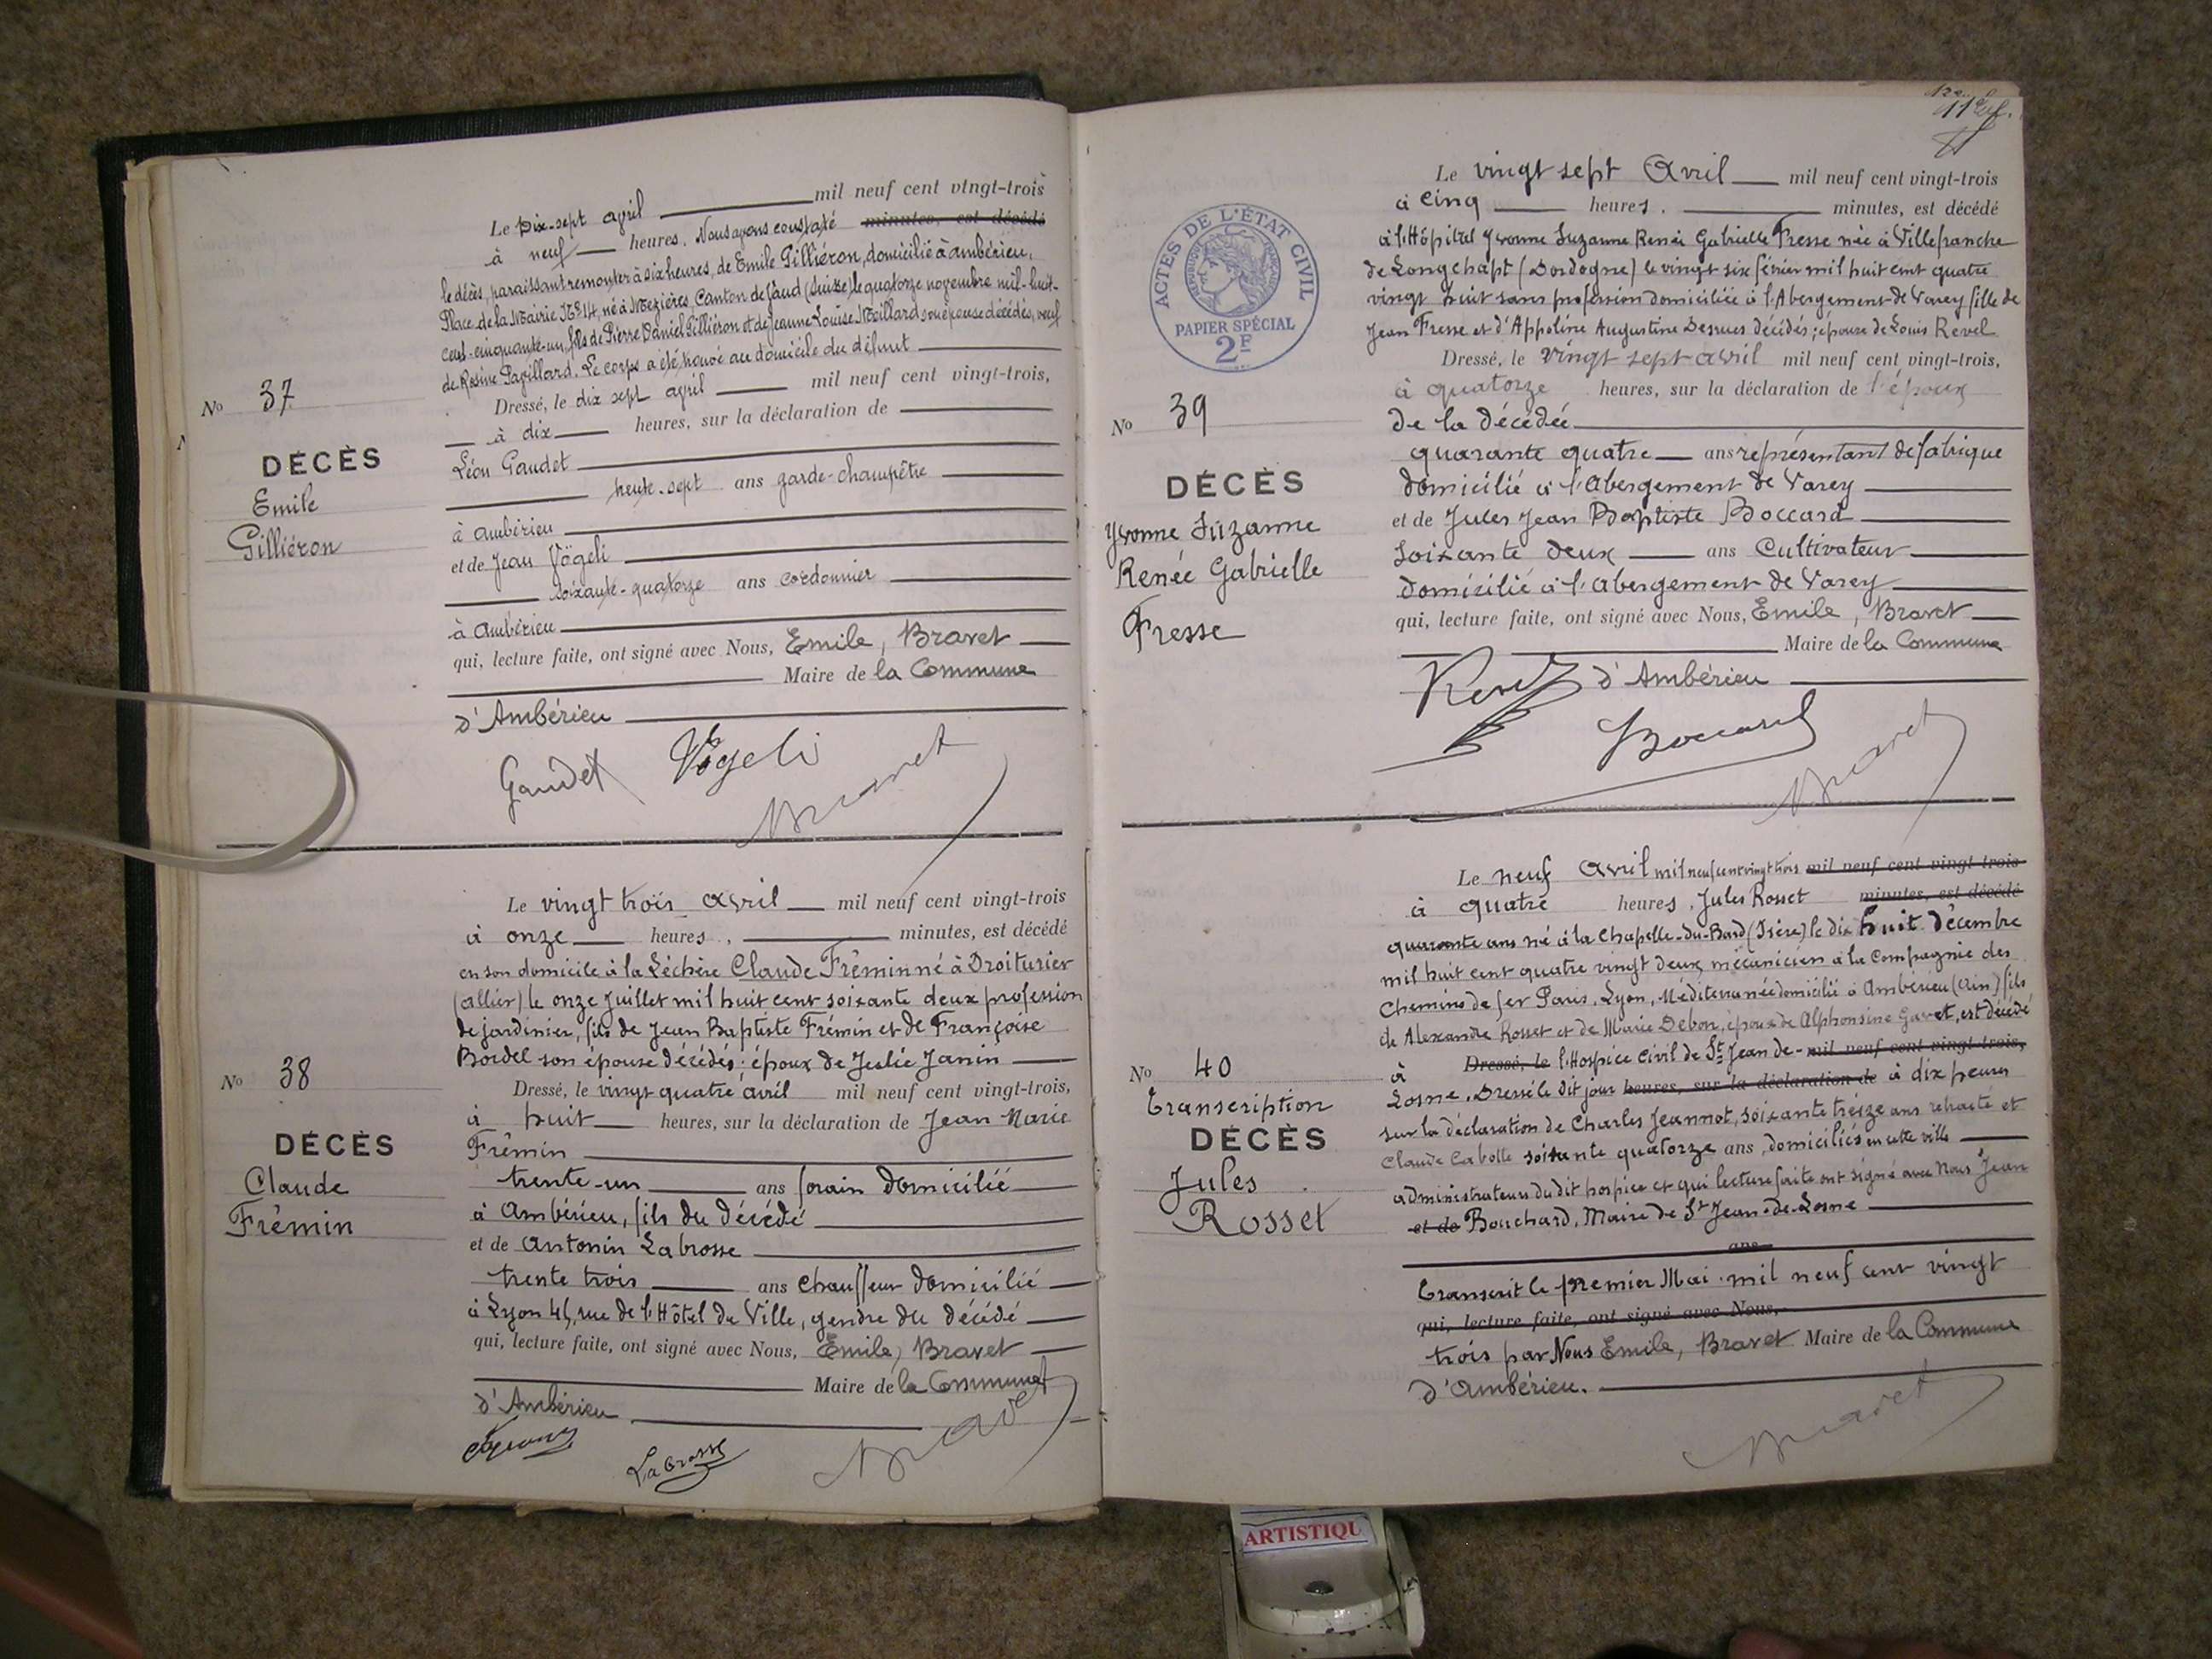 Le Dix-sept avril mil neuf cent vingt-trois
à neuf heures. Nous avons constaté minutes, est décédé
le décès, paraissant remonter à six heures, de Emile Gilliéron, domicilié à Ambérieu,
Place de la Mairie N° 14, né à Mezières, Canton de Vaud (Suisse) le quatorze novembre mil-huit-
cent-cinquante-un, fils de Pierre Daniel Gilliéron et de Jeanne Louise Meillard son épouse décédés, veuf
de Rosine Papillard. Le corps a été trouvé au domicile du défunt
Dressé, le dix sept avril mil neuf cent vingt-trois,
à dix heures, sur la déclaration de
Léon Gaudet
trente-sept ans garde-champêtre
à Ambérieu
et de Jean Vögeli
soixante-quatorze ans cordonnier
à Ambérieu
qui, lecture faite, ont signé avec Nous, Emile, Bravet
Maire de la Commune
d'Ambérieu
Gaudet Vögeli Bravet
No 37
DÉCÈS
Emile
Gilliéron
Le vingt trois avril mil neuf cent vingt-trois
à onze heures, minutes, est décédé
en son domicile à la Léchère Claude Frêmin né à Droiturier
(Allier) le onze Juillet mil huit cent soixante deux profession
de jardinier, fils de Jean Baptiste Frémin et de Françoise
Bordel son épouse décédés; époux de Julie Janin
Dressé, le vingt quatre avril mil neuf cent vingt-trois,
à huit heures, sur la déclaration de Jean Marie
Frêmin
trente-un ans forain domicilié
à Ambérieu, fils du décédé
et de Antonin Labrosse
trente trois ans chauffeur domicilié
à Lyon 41, rue de l'Hôtel de Ville, gendre du décédé
qui, lecture faite, ont signé avec Nous, Emile, Bravet
Maire de la Commune
d'Ambérieu
Labrosse Bravet
No 38
DÉCÈS
Claude
Frêmin
ACTES DE L'ÉTAT CIVIL
RÉPUBLIQUE FRANÇAISE
PAPIER SPÉCIAL
2F
Le vingt sept Avril mil neuf cent vingt-trois
à cinq heures. minutes, est décédé
à l'Hôpital Yvonne Suzanne Renée Gabrielle Fresse née à Villefranche
de Longchapt (Dordogne) le vingt six février mil huit cent quatre
vingt huit sans profession domiciliée à l'Abergement-de Varey fille de
Jean Fresse et d'Appoline Augustine Desrues décédés; épouse de Louis Revel
Dressé, le vingt sept avril mil neuf cent vingt-trois,
à quatorze heures, sur la déclaration de l'époux
de la décédée
quarante quatre ans représentant de fabrique
domicilié à l'Abergement de Varey
et de Jules Jean Baptiste Boccard
soixante deux ans Cultivateur
domicilié à l'Abergement de Varey
qui, lecture faite, ont signé avec Nous, Emile, Bravet
Maire de la Commune
d'Ambérieu
Revel
Boccard Bravet
No 39
DÉCÈS
Yvonne Suzanne
Renée Gabrielle
Fresse
Le neuf Avril mil neuf cent vingt trois mil neuf cent vingt-trois
à quatre heures, Jules Rosset minutes, est décédé
quarante ans né à la Chapelle-du-Bard (Isère) le dix huit décembre
mil huit cent quatre vingt deux, mécanicien à la Compagnie des
Chemins de fer Paris, Lyon, Méditerranée domicilié à Ambérieu (Ain) fils
de Alexandre Rosset et de Marie Debon, époux de Alphonsine Gavet, est décédé
à Dressé, le l'Hospice Civil de St Jean de- mil neuf cent vingt-trois,
Losne. Dressé le dit jour heures, sur la déclaration de à dix heures
sur la déclaration de Charles Jeannot, soixante treize ans retraité et
Claude Cabolle soixante quatorze ans, domiciliés en cette ville
administrateurs du dit hospice et qui lecture faite ont signé avec Nous Jean
et de Bouchard, Maire de St Jean-de-Losne
ans
Transcrit le premier Mai mil neuf cent vingt
qui, lecture faite, ont signé avec Nous,
trois par Nous Emile, Bravet Maire de la Commune
d'Ambérieu.
Bravet
No 40
Transcription
DÉCÈS
Jules
Rosset
ARTISTIQU